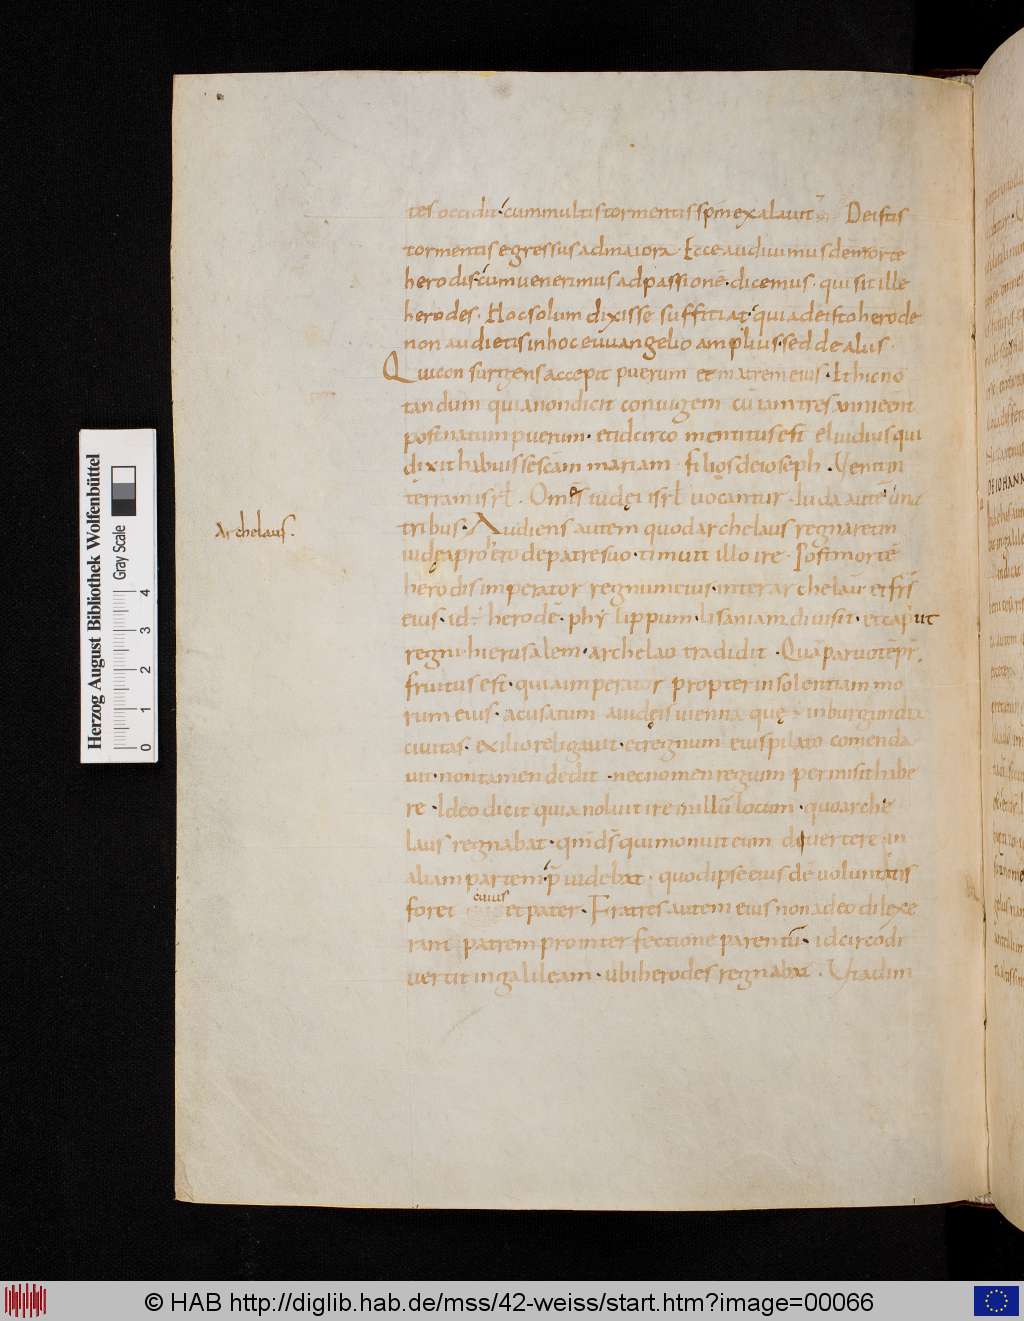 tes occidit · cum multis tormentis sp̄m exalauit De istis
tormentis egressus ad maiora · Ecce audiuimus de morte
herodis · cum uenerimus ad passionē · dicemus · qui sit ille
herodes · Hoc solum dixisse suffitiat · quia de isto herode
non audietis in hoc euuangelio amplius · sed de aliis ·
Qui consurgens accepit puerum et matrem eius · Et hic no
tandum quia non dicit coniugem cū iam tres anni eēnt
post natum puerum · et idcirco mentitus est eluidius qui
dixit habuisse scām mariam filios de ioseph · Uenit in
terram isrł · Omēs iudęi isrł uocantur · Iuda autē una
tribus · Audiens autem quod archelaus regnaret in
Archelaus ·
iudęa pro hero de patre suo · timuit illo ire · Post mortē
herodis imperator regnum eius inter archelaū et frs̄
eius · id · herodē · phylippum · lisaniam diuisit · et caput
regni hierusalem · archelao tradidit · Quā paruo tēpr̄
fruitus est · quia imperator propter insolentiam mo
rum eius · acusatum a iudęis uienna quę in burgundia
ciuitas · exilio religauit · et regnum eius pilato comenda
uit · non tamen dedit · nec nomen regium permisit habe
re · Ideo dicit quia noluit ire in illū locum · quo arche
laus regnabat · qm̄ ds̄ qui monuit eum diuertere in
aliam partem · p̄uidebat · quod ipse eius de uoluntatis
foret cuius et pater · Fratres autem eius non adeo dilexe
rant patrem pro interfectione parentū · idcirco di
uertit in galileam · ubi herodes regnabat · Ut adim
DE IOHANN
Herzog August Bibliothek Wolfenbüttel
Gray Scale
0 1 2 3 4
© HAB http://diglib.hab.de/mss/42-weiss/start.htm?image=00066